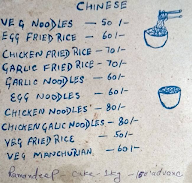 CHINESE
VEG NOODLES - 50/-
EGG FRIED RICE - 60/-
CHICKEN FRIED RICE - 70/-
GARLIC FRIED RICE - 70/-
GARLIC NOODLES - 60/-
EGG NOODLES - 60/-
CHICKEN NOODLES - 80/-
CHICKEN GALIC NOODLES - 80/-
VEG FRIED RICE - 50/-
VEG MANCHURIAN - 60/-
cake - 1kg